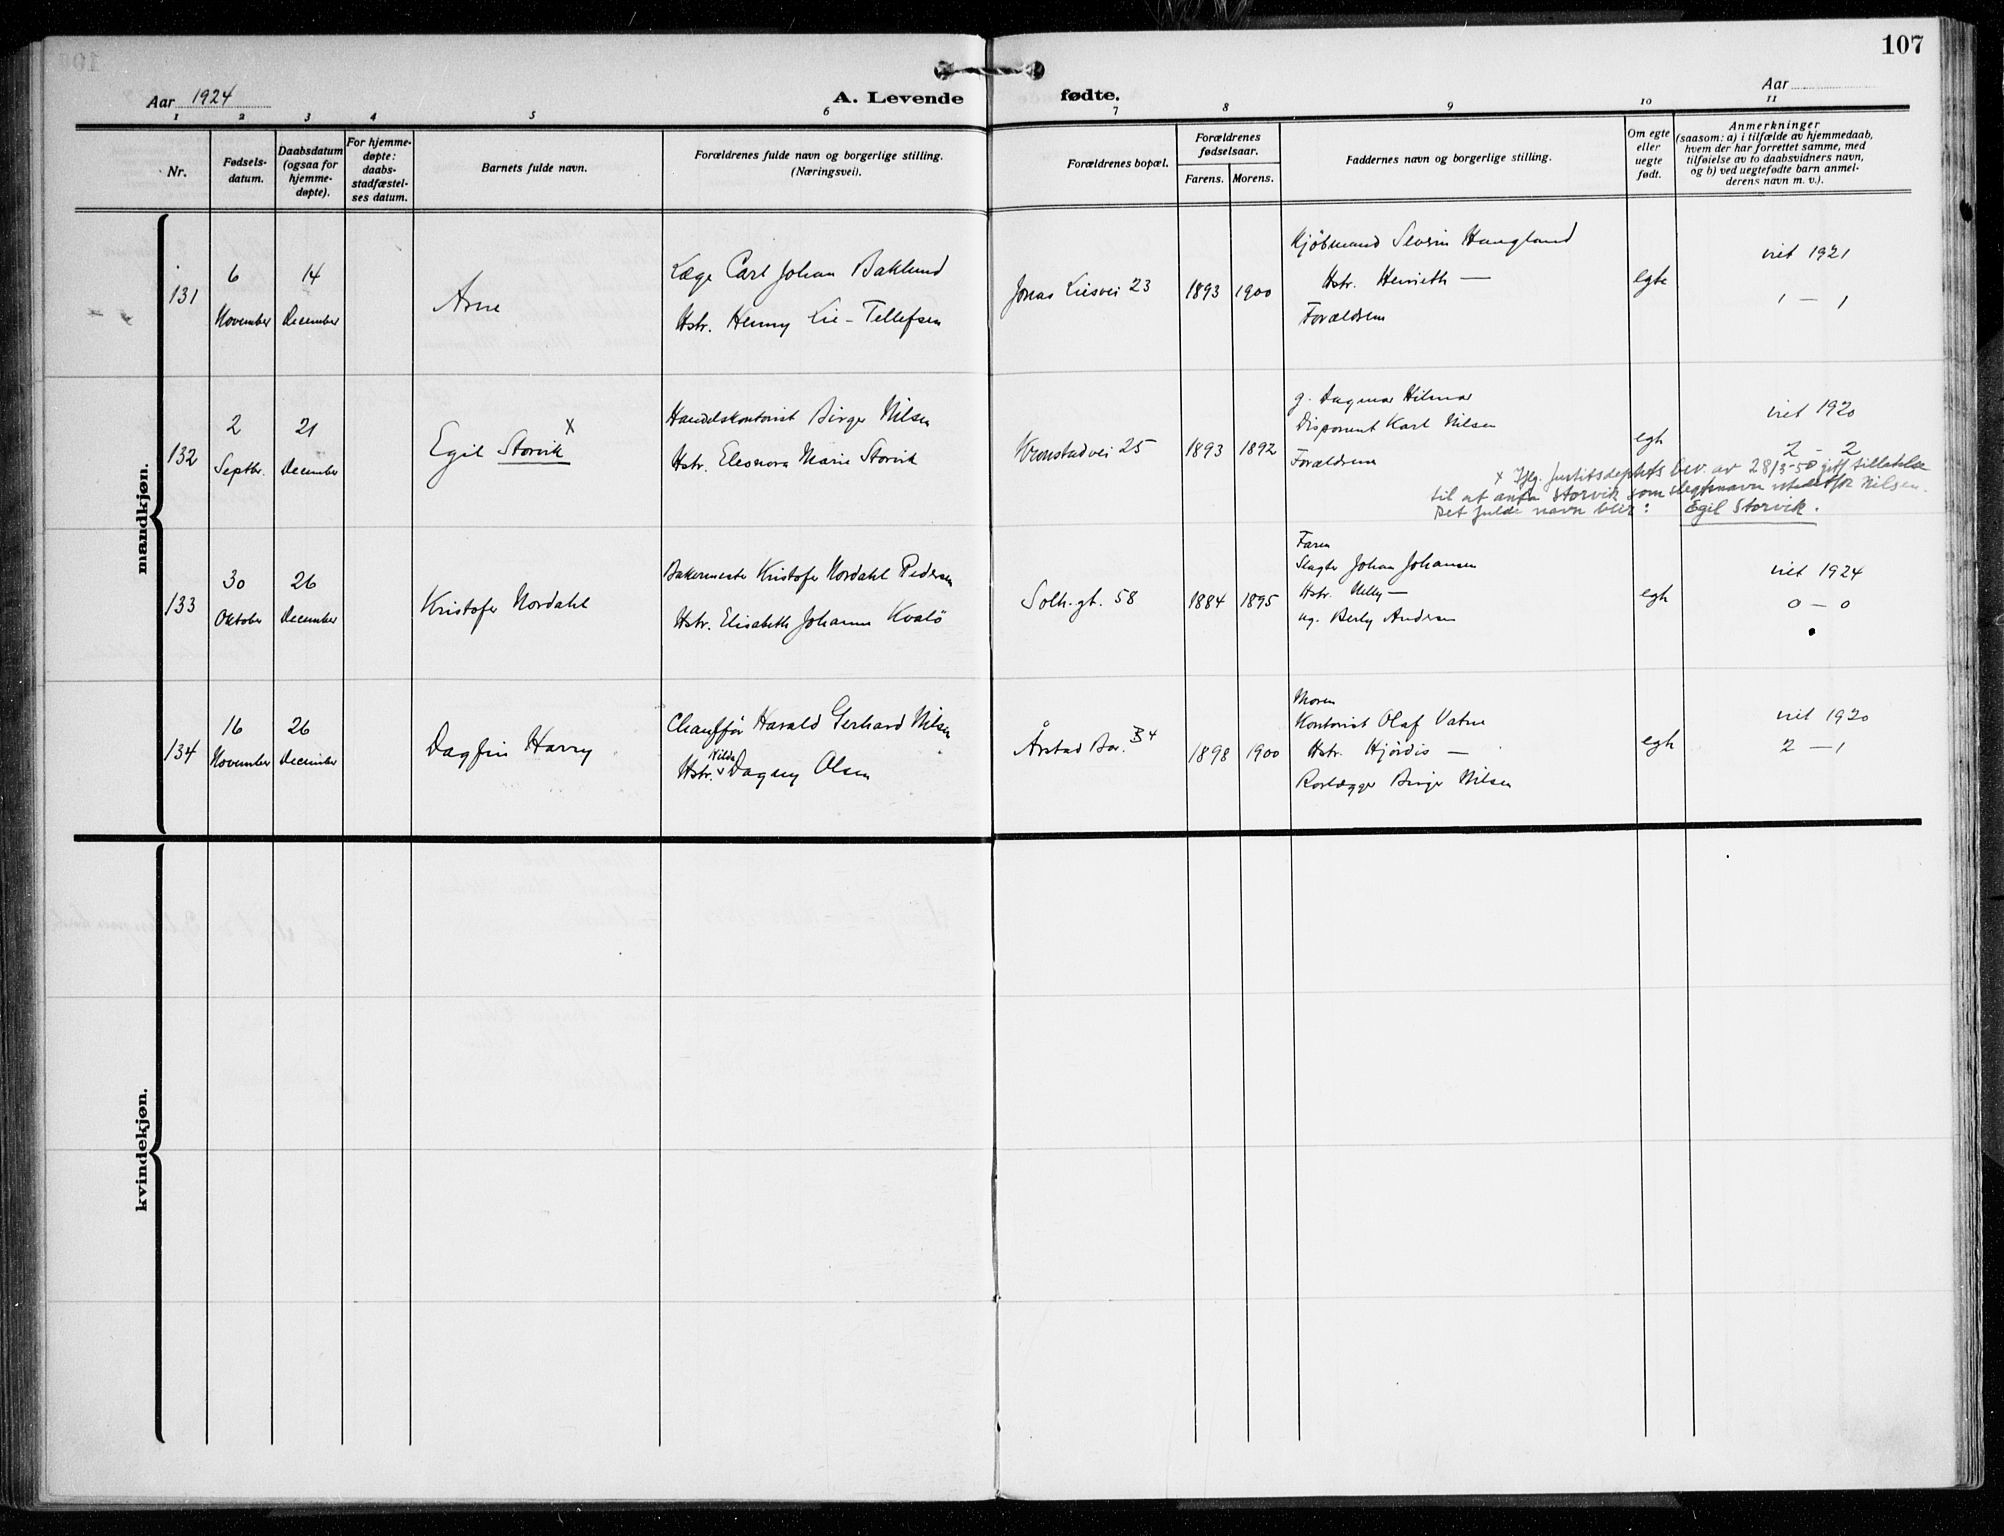 107
Aar 1924
A. Levende fødte.
Aar
1 2 3 4 5 6 7 8 9 10 11
Nr.
Fødsels-
datum.
Daabsdatum
(ogsaa for
hjemme-
døpte).
For hjemme-
døpte:
daabs-
stadfæstel-
ses datum.
Barnets fulde navn.
Forældrenes fulde navn og borgerlige stilling.
(Næringsvei).
Forældrenes bopæl.
Forældrenes
fødselsaar.
Farens. Morens.
Faddernes navn og borgerlige stilling.
Om egte
eller
uegte
født.
Anmerkninger
(saasom: a) i tilfælde av hjemmedaab,
hvem der har forrettet samme, med
tilføielse av to daabsvidners navn,
og b) ved uegtefødte barn anmel-
derens navn m. v.).
mandkjøn.
131
6
November
14
December
Arne
Læge Carl Johan Baklund
Hstr. Henny Lie-Tellefsen
Jonas Liesvei 23
1893
1900
Kjøbmand Severin Haugland
Hstr. Henrieth —
Forældrene
egte
viet 1921
1 — 1
132
2
Septbr.
21
December
Egil Storvik x
Handelskontorist Birger Nilsen
Hstr. Eleonora Marie Storvik
Kronstadvei 25
1893
1892
g. Dagmar Hilmar
Disponent Karl Nilsen
Forældrene
egte
viet 1920
2 - 2
x Iflg. Justitsdeptets bev. av 28/3-50 gitt tillatelse
til at anta Storvik som slegtsnavn istedetfor Nilsen.
Det fulde navn blir: Egil Storvik.
133
30
Oktober
26
December
Kristofer Nordahl
Bakermester Kristofer Nordahl Pedersen
Hstr. Elisabeth Johanne Kvalø
Solh.gt. 58
1884
1895
Faren
Slagter Johan Johansen
Hstr. Nelly —
ug. Berly Andersen
egte
viet 1924
0 — 0
134
16
November
26
December
Dagfin Harry
Chauffør Harald Gerhard Nilsen
Hstr. Hilda Dagny Olsen
Årstad Bar. 34
1898
1900
Moren
Kontorist Olaf Vatne
Hstr. Hjørdis —
Rørlægger Birger Nilsen
egte
viet 1920
2 — 1
kvindekjøn.